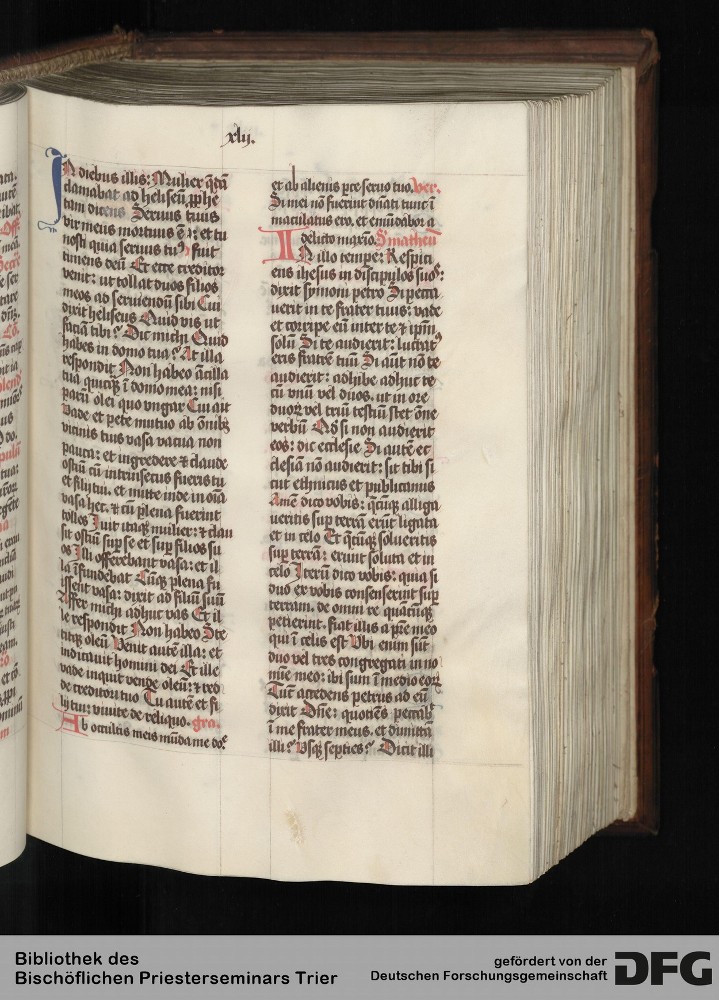 xlij.
In diebus illis: Mulier q̄dā
clamabat ad heliseū, p̱phe
tam dicens Seruus tuus
vir meus mortuus ē ⁊ et tu
nosti quia seruus tuꝰ fuit
timens deū Et ecce creditor
venit: ut tollat duos filios
meos ad seruiendū sibi Cui
dixit heliseus Quid vis ut
faciā tibi? Dic michi Quid
habes in domo tua? At illa
respondit Non habeo ācilla
tua quicq̄ ī domo mea: nisi
parū olei quo vngar Cui ait
Vade et pete mutuo ab om̄ibꝫ
vicinis tuis vasa vacua non
pauca: et ingredere ⁊ claude
ostiū cū intrinsecus fueris tu
et filij tui. et mitte inde in oīa
vasa hec. ⁊ cū plena fuerint
tolles Iuit itaqꝫ mulier: ⁊ clau
sit ostiū sup̱ se et sup̱ filios su
os Isti offerebant vasa: et il
la īfundebat Cūqꝫ plena fu
issent vasa: dixit ad filiū suū
Affer michi adhuc vas Et il
le respondit Non habeo Ste
titqꝫ oleū Venit autē illa: et
indicauit homini dei Et ille
vade inquit vende oleū: ⁊ red
de creditori tuo Tu autē et fi
lij tui: viuite de reliquo. gra.
Ab occultis meis mūda me do᷑
et ab alienis parce seruo tuo. Ver.
Si mei nō fuerint dn̄ati tunc ī
maculatus ero. et emūdabor a
delicto maxīo. S matheū
In illo tempe: Respici
ens ihesus in discipulos suos:
dixit symoni petro Si pecca
uerit in te frater tuus: vade
et corripe eū inter te ⁊ ip̄m
solū Si te audierit: lucratꝰ
eris fratrē tuū Si aūt nō te
audierit: adhibe adhuc te
cū vnū vel duos. ut in ore
duoꝝ vel triū testiū stet ōne
verbū Qd̓ si non audierit
eos: dic ecclesie Si autē et
clesiam nō audierit: sit tibi si
cut ethnicus et publicanus
Amē dico vobis: q̄cūqꝫ alliga
ueritis sup̱ terrā erūt ligata
et in celo Et q̄cūqꝫ solueritis
sup̱ terrā: erunt soluta et in
celo Iterū dico vobis: quia si
duo ex vobis consenserint sup̱
terram. de omni re quācūqꝫ
petierint. fiat illis a p̄re meo
qui ī celis est Vbi enim sūt
duo vel tres congregati in no
mīe meo: ibi sum ī medio eoꝝ
Tūc accedens petrus ad eū
dixit Dn̄e: quotiēs peccab
ī me frater meus. et dimittā
illi? Vsqꝫ septies? Dicit illi
Bibliothek des
Bischöflichen Priesterseminars Trier
gefördert von der
Deutschen Forschungsgemeinschaft
DFG